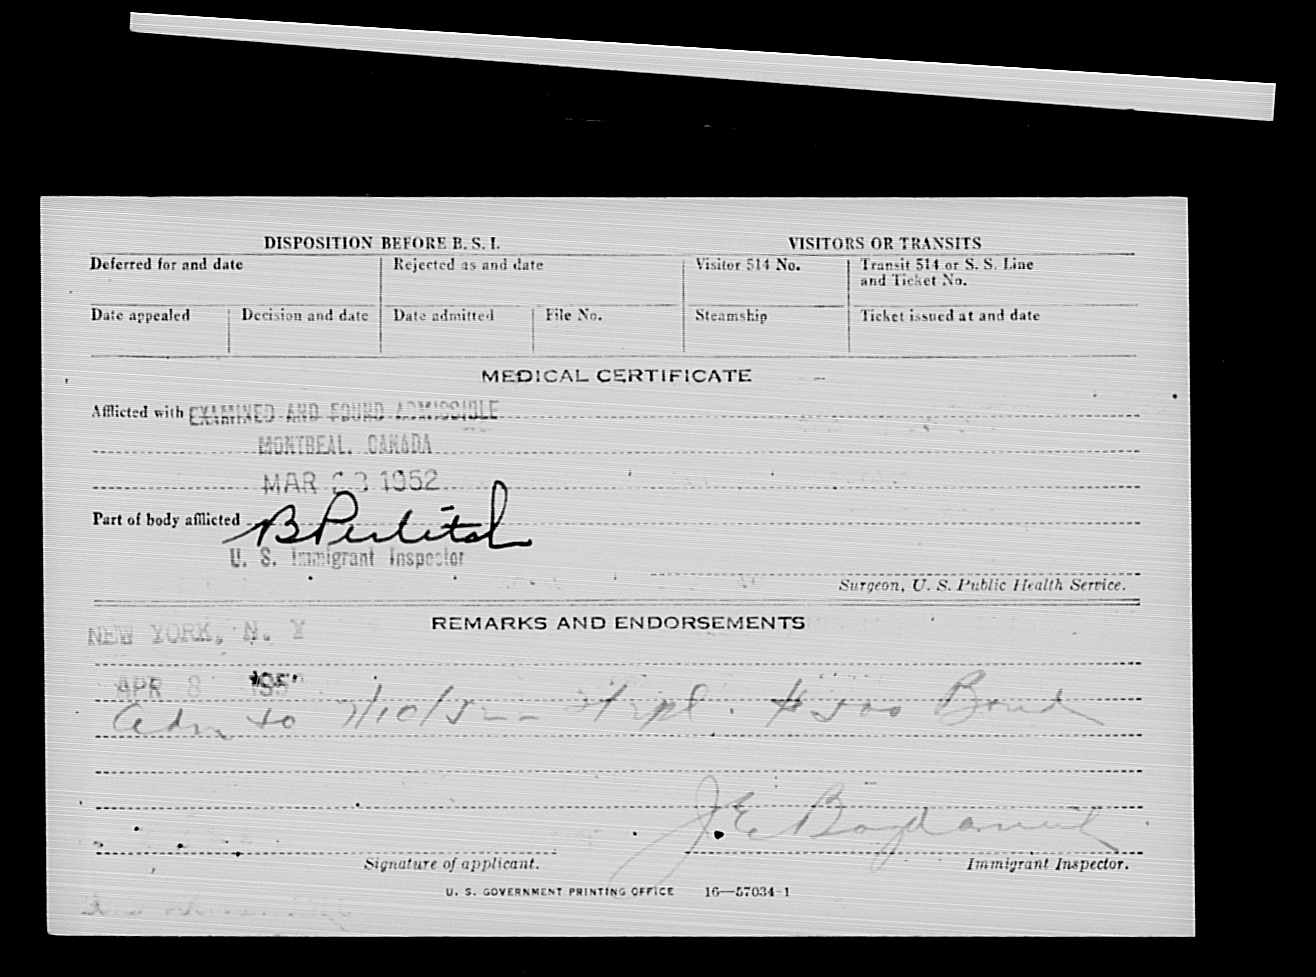 DISPOSITION BEFORE B. S. I. VISITORS OR TRANSITS
Deferred for and date Rejected as and date Visitor 514 No. Transit 514 or S. S. Line and Ticket No.
Date appealed Decision and date Date admitted File No. Steamship Ticket issued at and date
MEDICAL CERTIFICATE
Afflicted with EXAMINED AND FOUND ADMISSIBLE
MONTREAL, CANADA
MAR 1952
Part of body afflicted
U. S. Immigrant Inspector
Surgeon, U. S. Public Health Service.
REMARKS AND ENDORSEMENTS
NEW YORK, N. Y
APR 8 195
Adm to 7/10/52 $500 Bond
J E
Signature of applicant. Immigrant Inspector.
U. S. GOVERNMENT PRINTING OFFICE 16—57034-1